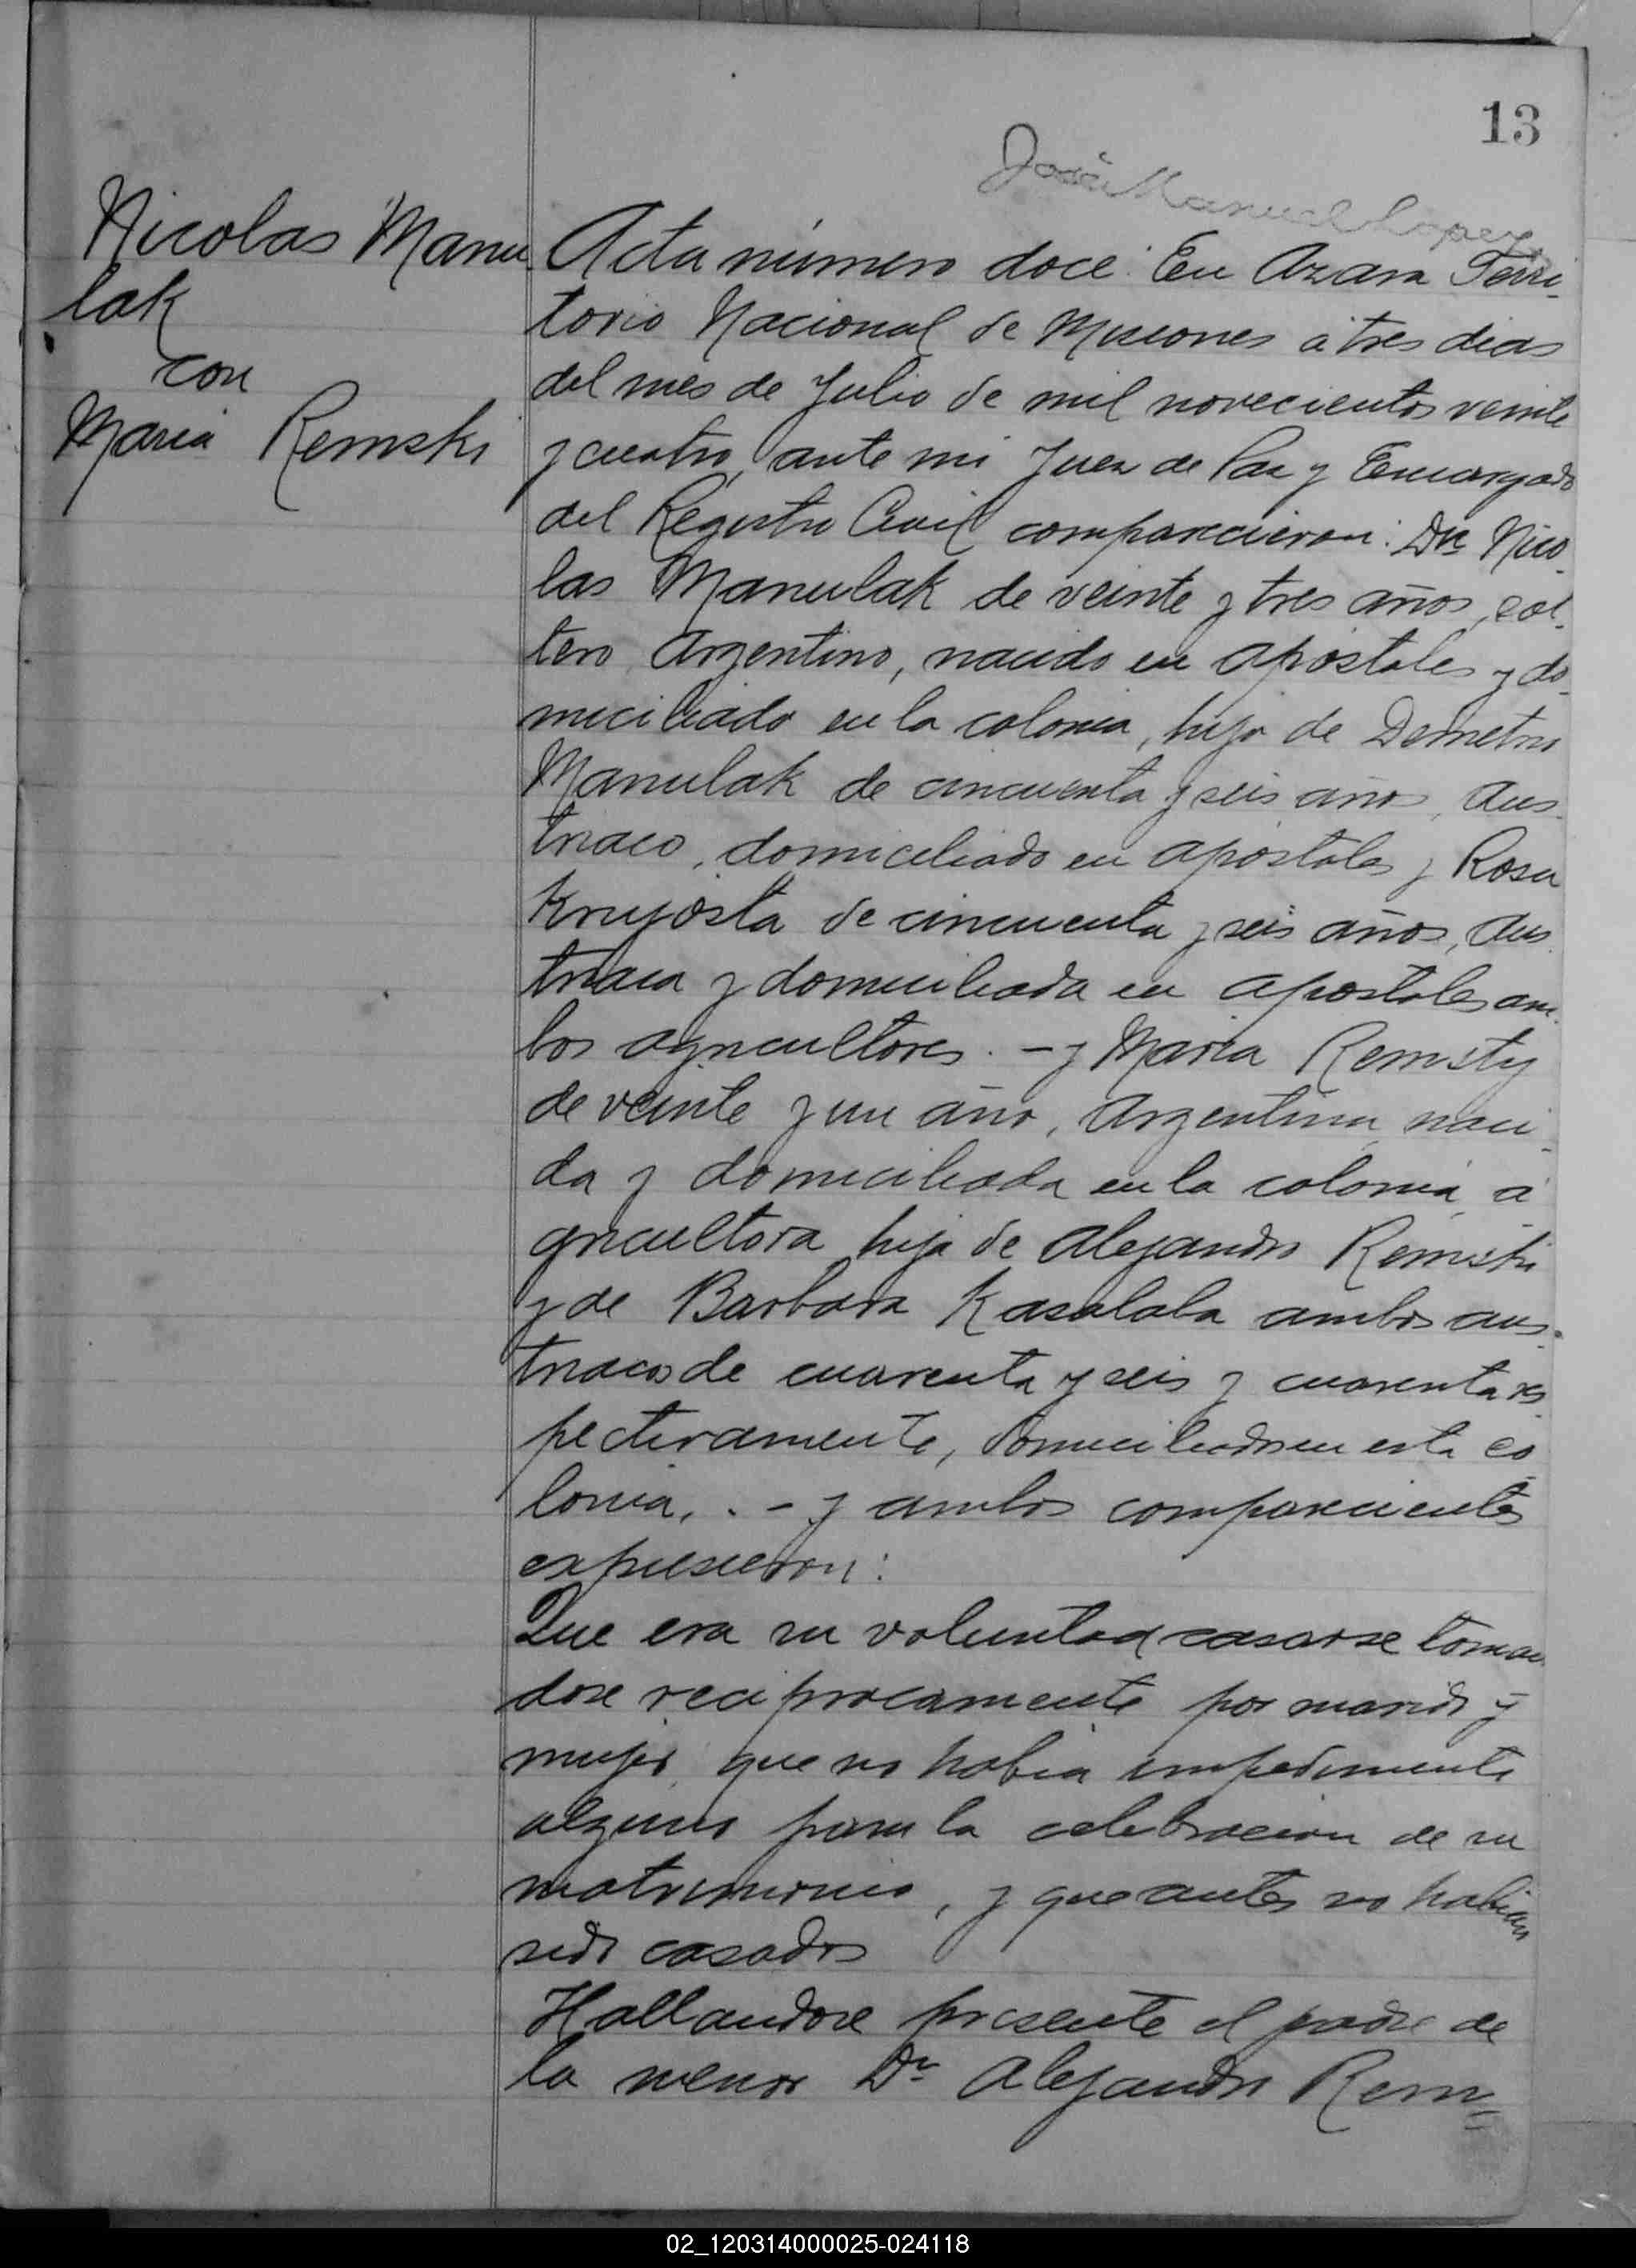 13
José Manuel Lopez
Nicolas Manu
lak
con
Maria Remski
Acta número doce. En Azara Terri-
torio Nacional de Misiones á tres dias
del mes de Julio de mil novecientos veinte
y cuatro, ante mi Juez de Paz y Encargado
del Registro Civil comparecieron: Dn Nico-
las Manulak de veinte y tres años, sol-
tero, Argentino, nacido en Apóstoles y do-
miciliado en la colonia, hijo de Demetrio
Manulak de cincuenta y seis años, Aus-
triaco, domiciliado en Apóstoles y Rosa
de cincuenta y seis años, Aus-
triaca y domiciliada en Apostoles am-
bos agricultores. - y Maria Remsky
de veinte y un año, Argentina, naci-
da y domiciliada en la colonia, a-
gricultora hija de Alejandro Remski
y de Barbara Kasalaba ambos aus-
triacos de cuarenta y seis y cuarenta res-
pectivamente, domiciliados en esta co-
lonia, . - y ambos comparecientes
expusieron:
Que era su voluntad casarse toman-
dose reciprocamente por marido y
mujer, que no habia impedimento
alguno para la celebracion de su
matrimonio, y que antes no habian
sido casados
Hallandose presente el padre de
la menor Dn Alejandro Rem=
02_120314000025-024118